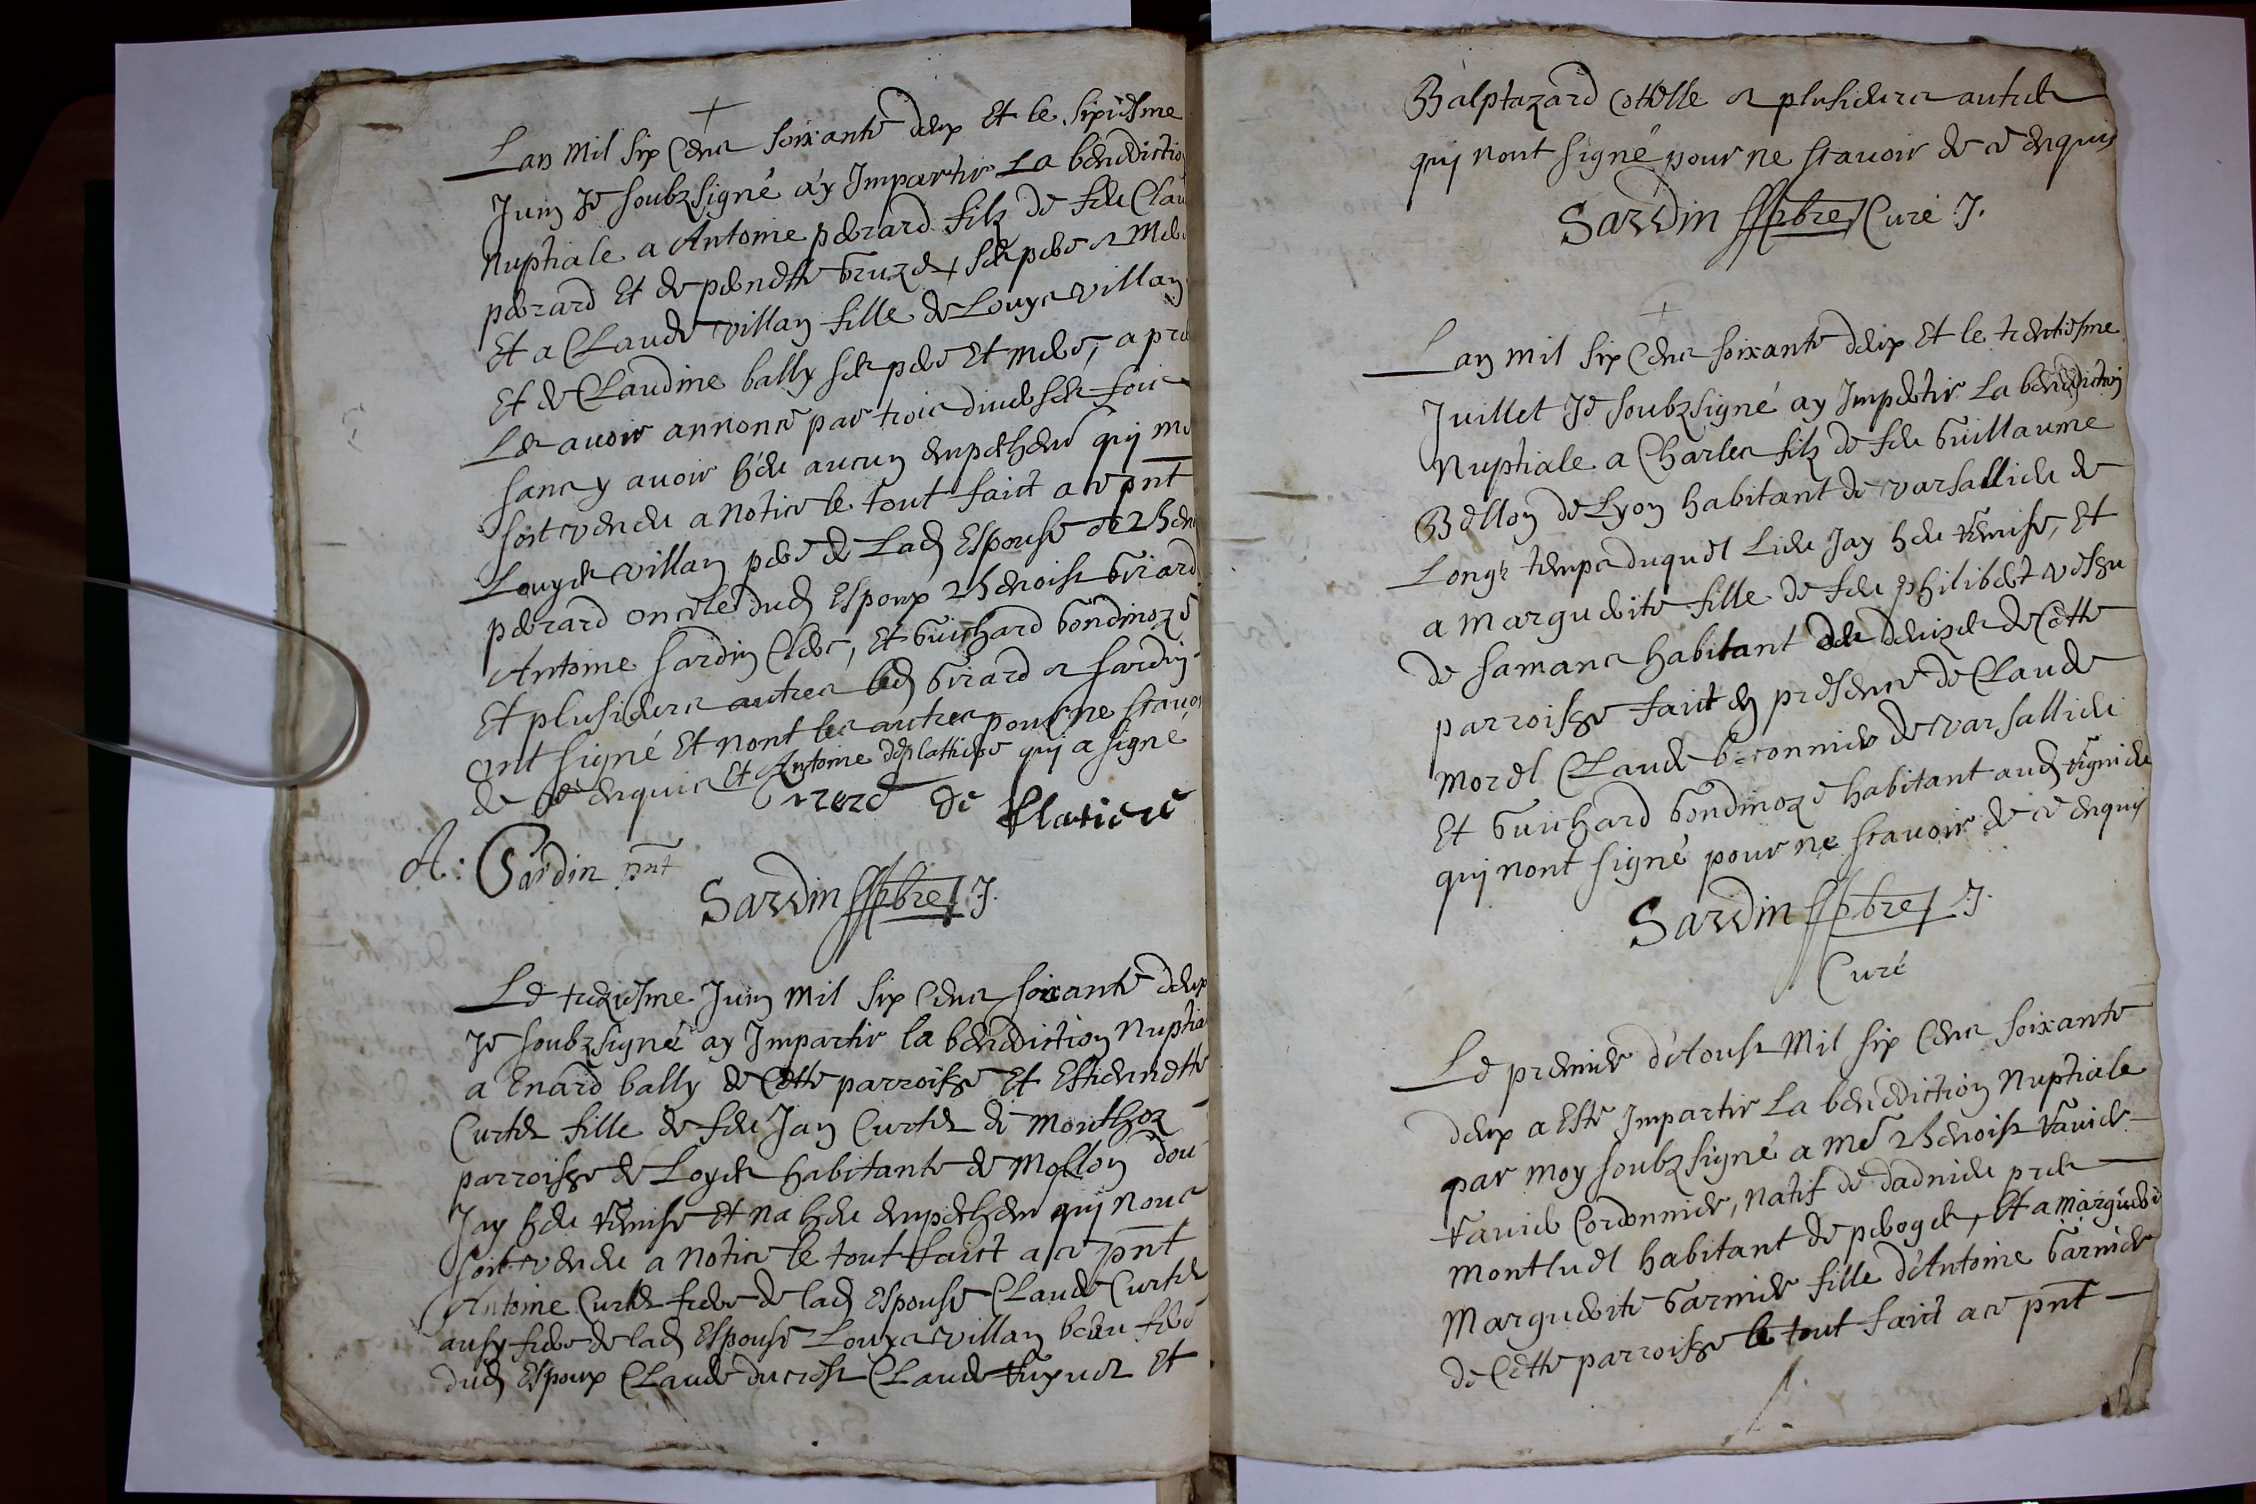 Lan mil six cens soixante deux et le sixiesme
Juin Je soubzsigné ay Impartir La benedictio
nuptiale a Antoine perrard filz de feu Clau
perrard et de pernette Gruze, ses pere et mere
Et a Claude villan fille de Louys villan
Et de Claudine bally ses pere et mere, apre
Les avoir annoncé par trois diverses fois
sans y avoir heu aucun empechem̃ qui me
soit veneu a notice le tout faict a ce pñt
Louys villan pere de Lad Espouse et Beno
perrard oncle dud Espoux Benoist Girard
Antoine sardin Clerc, et Guichard Gondinoze
Et plusieurs autres led Girard et sardin
ont signé et nont les autres pour ne scavoi
de ce enquis et Antoine deplatiere qui a signé
Girerd De Platiere
A: Sardin pñt
Sardin pbre J.
Le treziesme Juin mil six cens soixante deux
Je soubzsigné ay Impartir la benediction nuptia
a Enard bally de Cette parroisse Et Estiennette
Curtet fille de feu Jan Curtet de Monthoz
parroisse de Loyes habitante de Mollon dou
Jay heu remise et na heu empechem qui nous
soit veneu a notice le tout faict a ce pñt
Antoine Curtet frere de lad Espouse Claude Curtet
aussy frere de lad Espouse Louys villan beau frere
dud Espoux Claude ducrest Claude et
Balptazard Cottelle et plusieurs autres
qui nont signé pour ne scavoir de ce enquis
Sardin pbre Curé J.
Lan mil six cens soixante deux et le trentiesme
Juillet Je soubzsigné ay Impertir La benediction
Nuptiale a Charles filz de feu Guillaume
Bellon de Lyon habitant de varsallieu de
Longz temps duquel Lieu Jay heu remise, Et
a Marguerite fille de feu philibert vessu
de samans habitant de cette
parroisse faict en presence de Claude
Morel Claude b de varsallieu
Et Guichard Gondinoze habitant aud rignieu
qui nont signé pour ne scavoir de ce enquis
Sardin pbre J.
Curé
Le premier d'aoust Mil six cens soixante
deux a Esté Impartir La benediction nuptiale
par moy soubzsigné a Me Benoist ravier
ravier Cordonnier, natif de dadnieu pres
Montluel habitant de peroges, Et a marguerite
Marguerite Garnier fille d'Antoine Garnier
de Cette parroisse le tout faict a ce pñt